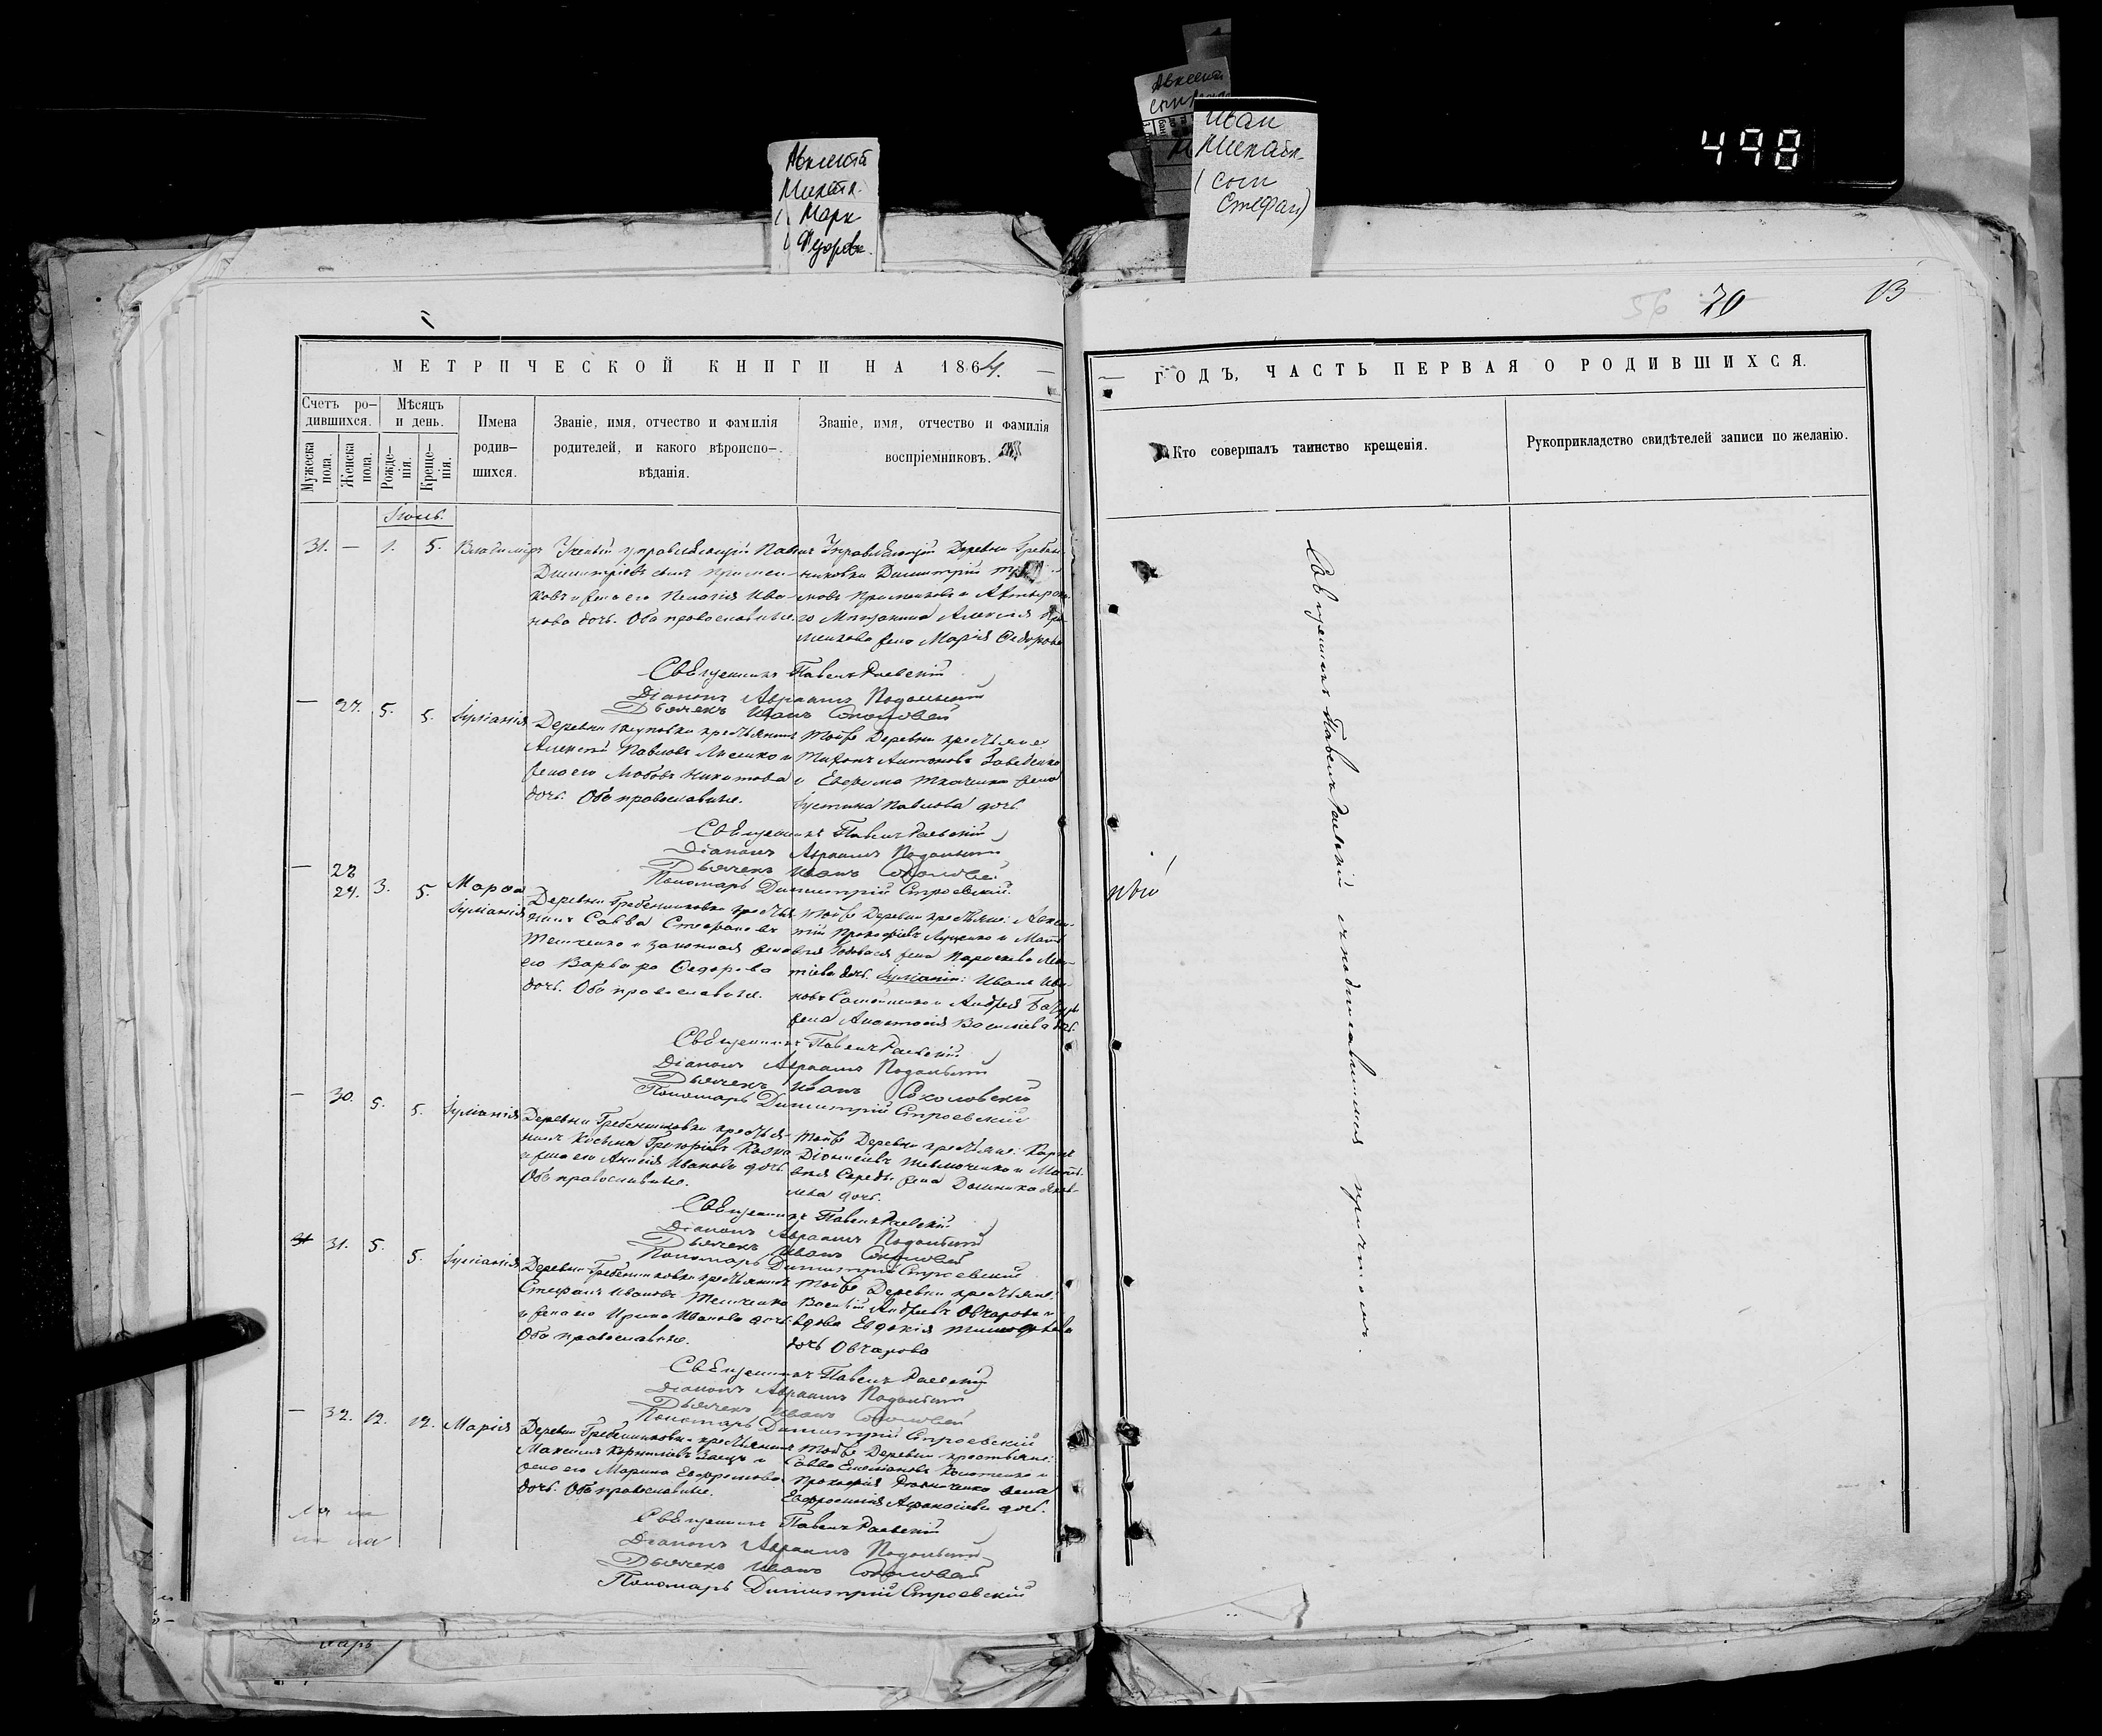 498
Авксентий
Микайл.
Марк
Федоровн.
Авксентий
Иван
Микайл.
(сын
Стефан)
56 70 13
МЕТРИЧЕСКОЙ КНИГИ НА 1864.
Счетъ ро-
дившихся.
Мужеска пола.
Женска пола.
Мѣсяцъ
и день.
Рожде-
нія.
Креще-
нія.
Имена
родив-
шихся.
Званіе, имя, отчество и фамилія
родителей, и какого вѣроиспо-
вѣданія.
Званіе, имя, отчество и фамилія
воспріемниковъ.
ГОДЪ, ЧАСТЬ ПЕРВАЯ О РОДИВШИХСЯ.
Кто совершалъ таинство крещенія.
Рукоприкладство свидѣтелей записи по желанію.
Іюль.
31. — 1. 5. Владиміръ
управляющій Павелъ
Димитріевъ сынъ
и жена его Пелагія Ива-
нова дочь. Оба православные.
Управляющій Деревни Гребен-
никовки Димитрій
Мѣщанина Алексѣя
жена Марія Ѳедорова
Священникъ Павелъ Раевскій
Діаконъ Авраамъ Подольскій
Дьячекъ Иванъ Соколовскій
— 27. 5. 5. Іуліанія
Деревни крестьянинъ
Алексѣй Павловъ Лисенко и
жена его Любовь Никитова
дочь. Оба православные.
Тойже Деревни крестьяне
Тихонъ Антоновъ
и Ефрема Ткаченка жена
Іустина Павлова дочь.
Священникъ Павелъ Раевскій
Діаконъ Авраамъ Подольскій
Дьячекъ Иванъ Соколовскій
Пономарь Димитрій Строевскій.
— 28 29. 3. 5. Марѳа Іуліанія
Деревни Гребенниковки крестья-
нинъ Савва Стефановъ
Темченко и законная жена
его Варвара Ѳедорова
дочь. Оба православные.
Тойже Деревни крестьяне: Авксен-
тій Прокофіевъ Луценко и Матѳ-
вея жена Параскева Леон-
тіева дочь. Іуліаніи: Иванъ Ива-
новъ и Андрея
жена Анастасія Васильева дочь.
Священникъ Павелъ Раевскій
Діаконъ Авраамъ Подольскій
Дьячекъ Иванъ Соколовскій
Пономарь Димитрій Строевскій
— 30. 5. 5. Іуліанія
Деревни Гребенниковки крестья-
нинъ Косьма Григорьевъ
и жена его Анисія Иванова дочь.
Оба православные.
Тойже Деревни крестьяне: Карпъ
Діонисіевъ Шевлюченко и Матѳ-
вея жена Домника Яков-
лева дочь.
Священникъ Павелъ Раевскій
Діаконъ Авраамъ Подольскій
Дьячекъ Иванъ Соколовскій
Пономарь Димитрій Строевскій
31 31. 5. 5. Іуліанія
Деревни Гребенниковки крестьянинъ
Стефанъ Ивановъ Темченко
и жена его Ирина Иванова дочь
Оба православные.
Тойже Деревни крестьяне:
Василій Андреевъ Овчаровъ и
вдова Евдокія Тимофѣева
дочь Овчарова
Священникъ Павелъ Раевскій
Діаконъ Авраамъ Подольскій
Дьячекъ Иванъ Соколовскій
Пономарь Димитрій Строевскій
— 32. 12. 12. Марія
Деревни Гребенниковки крестьянинъ
Максимъ Корниліевъ Заецъ и
жена его Марина Евфремова
дочь. Оба православные.
Тойже Деревни крестьяне:
Савва Емеліановъ и
Прокофія жена
Евфросинія Аѳанасіева дочь.
Священникъ Павелъ Раевскій
Діаконъ Авраамъ Подольскій
Дьячекъ Иванъ Соколовскій
Пономарь Димитрій Строевскій
Священникъ Павелъ Раевскій съ подписавшимся причтомъ.